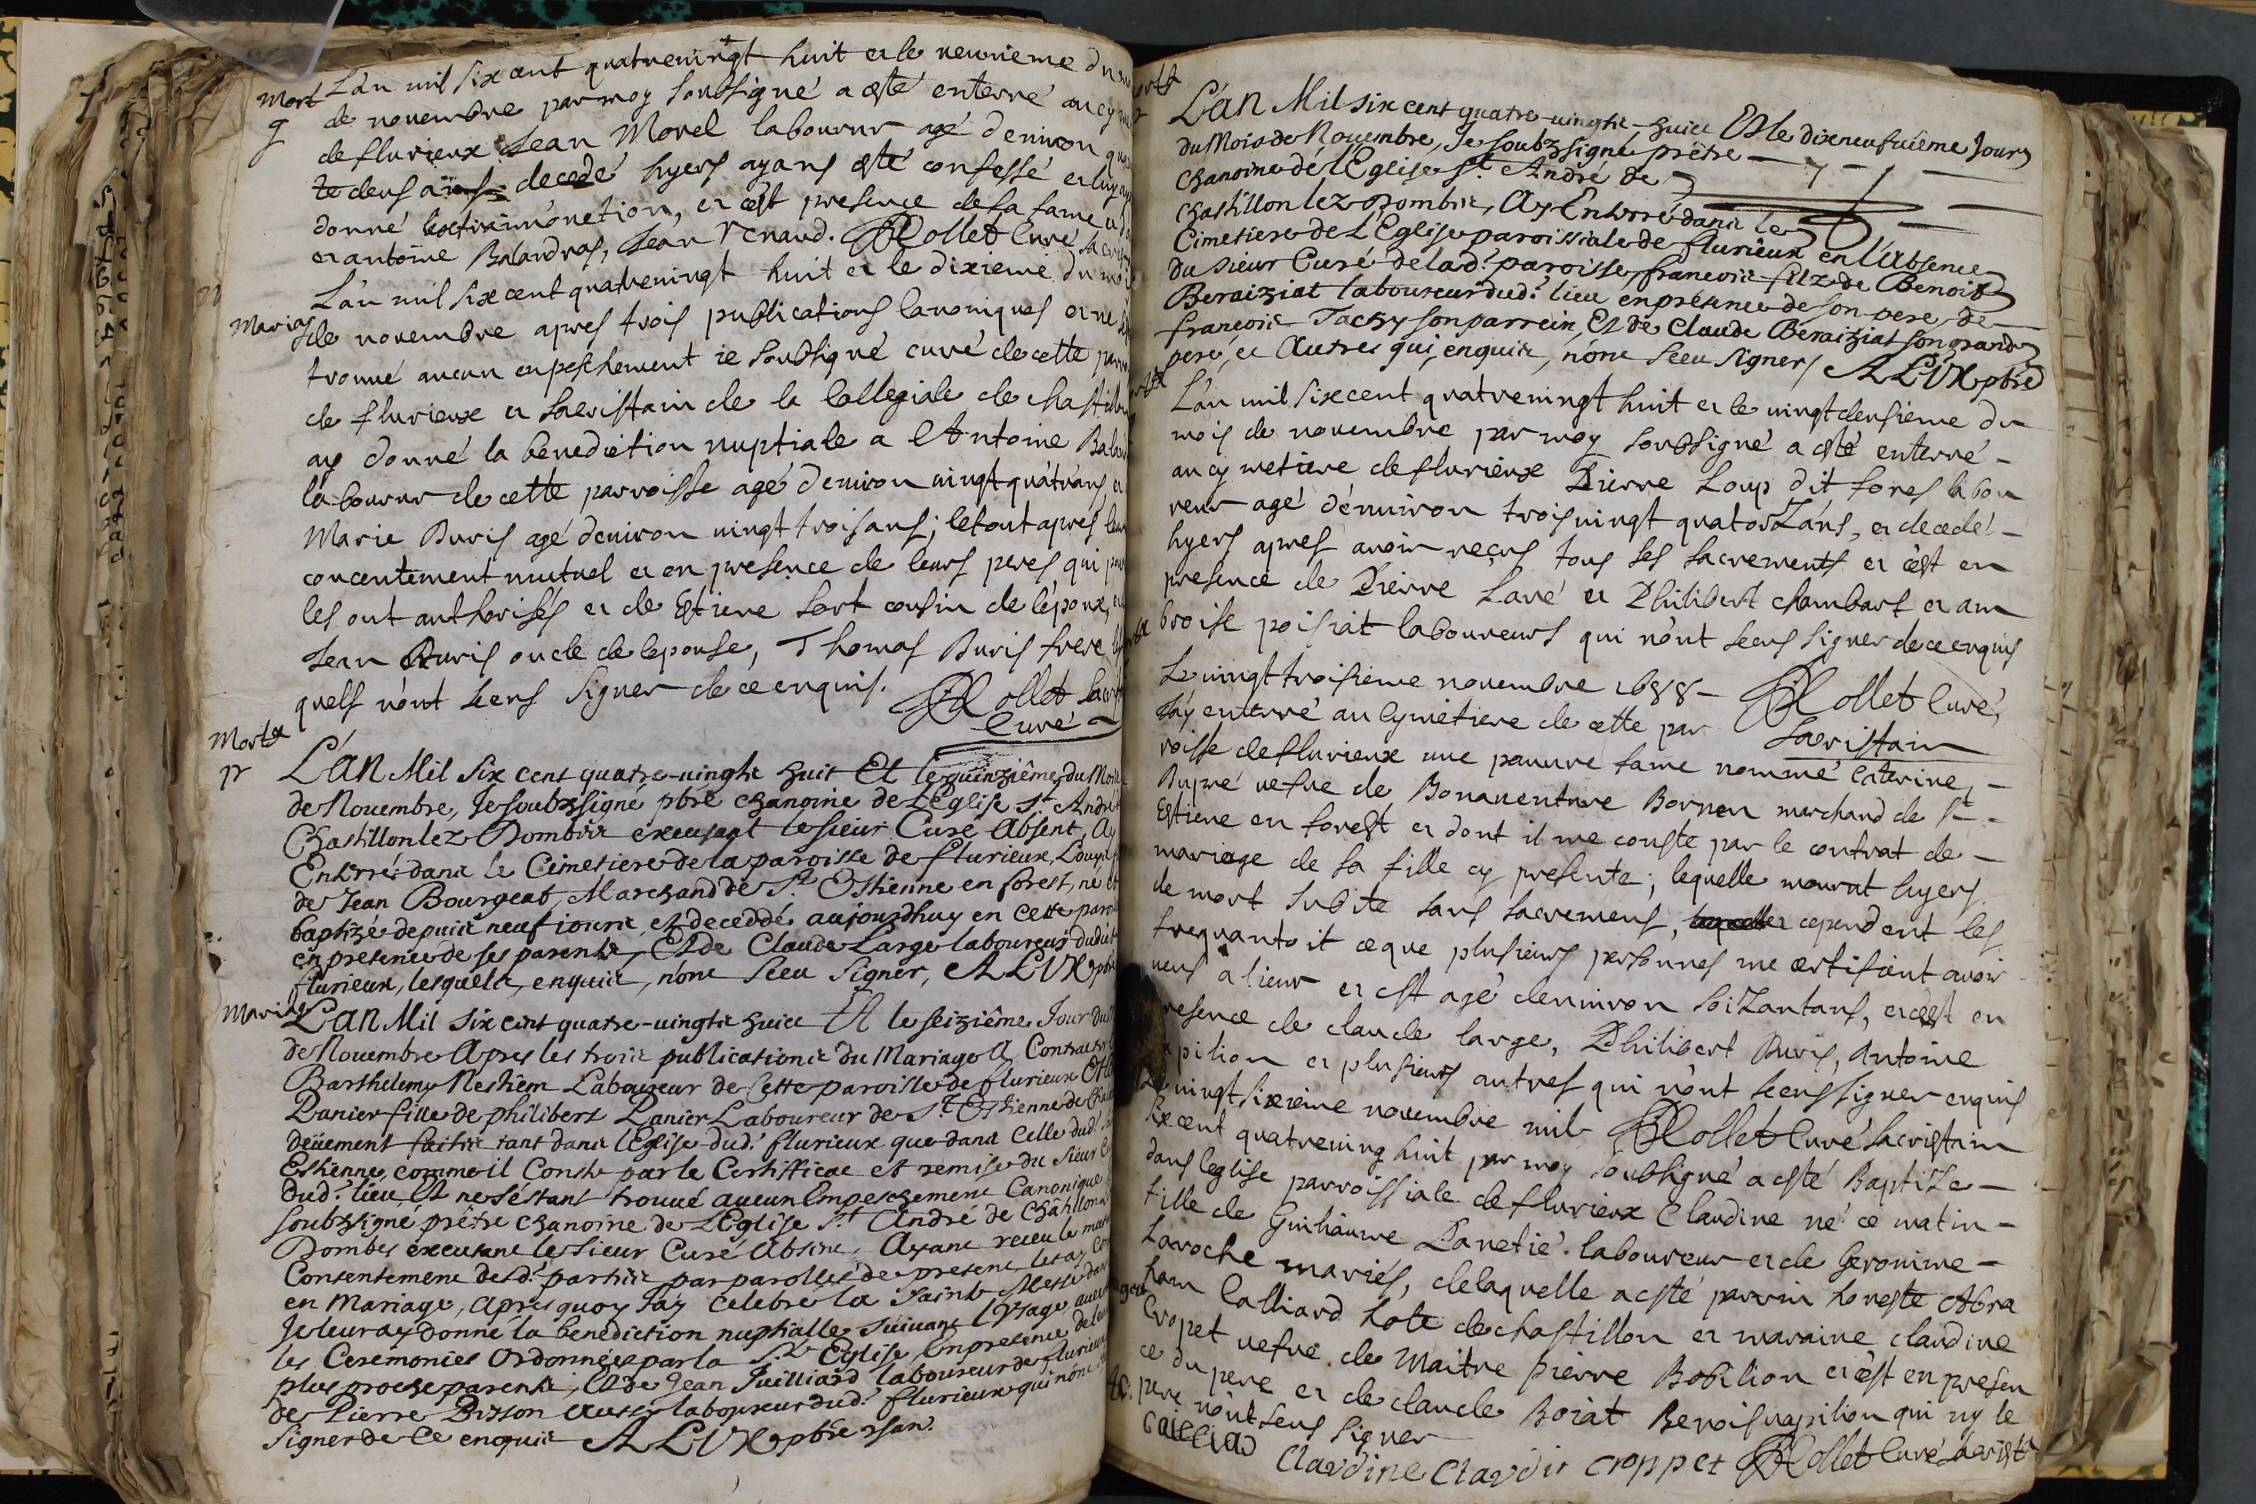 Mort
L'an mil six cent quatreuingt huit et le neuuieme du
de nouembre par moy soubsigné a esté enterré au cy
de flurieux Jean Morel laboureur agé denuiron
te deus ans decedé hyers ayans esté confessé et luy
donné lextraimonction, et c'est presence de sa fame
et antoine Balandras, Jean Renaud. Rollet Curé
Mariag
L'an mil six cent quatreuingt huit et le dixieme du moi
de nouembre apres trois publications canoniques et ne
trouué aucun enpeschement ie soubsigné curé de cette
de flurieux et sacristain de la Collegiale de chastillon
ay donné la benediction nuptiale a Antoine
laboureur de cette parroisse agé denuiron uingt quatrans, et
Marie Buris agé denuiron uingt trois ans; le tout apres leur
concentement mutuel et en presence de leurs peres qui
les ont authorisés et de Estiene Sort cousin de lepoux, et
Jean Buris oncle de lepouse, Thomas Buris frere
quels n'ont sceus signer de ce enquis. Rollet
Curé
Morts
L'an Mil six cent quatre-uingts huit Et le quinziéme du Mois
de Nouembre, Je soubzsigné pbrē chanoine de L'Eglise St André
Chastillon lez Dombes excusant le sieur Curé Absent, Ay
Enterré dans le Cimetiere de la paroisse de flurieux,
de Jean Bourgeat, Marchand de St Estienne en forest, né et
baptizé depuis neuf iours, et deceddé aujourdhuy en cette
en presence de ses parents, Et de Claude Large laboureur dudict
flurieux, lesquels, enquis, n'ont sceu signer, ALIX pbrē
Mariage
L'an Mil six cent quatre-uingts huict Et le seiziéme Jour du
de Nouembre Apres les trois publications du Mariage A Contracter
Barthelemy Neshem Laboureur de Cette paroisse de flurieux
Panier fille de philibert Panier Laboureur de St Estienne de
deuement faittes tant dans l'Eglise dud. flurieux que dans Celle dud.
Estienne, comme il Conste par le Certifficat et remise du sieur
dud. lieu, Et ne s'estant trouué aucun Empeschement Canonique
soubzsigné prêtre chanoine de L'Eglise St André de Châstillon
Dombes excusant le sieur Curé Absent, Ayant receu le
Consentement desd. parties par parolles de present les ay
en Mariage, apres quoy J'ay celebré la Sainte Messe
Je leur ay donné la benediction nuptialle suiuant l'Vsage auec
les Ceremonies Ordonnées par la Ste Eglise En presence de leurs
plus proche parents, Et de Jean Juilliard laboureur de flurieux
de Pierre Bisson aussy laboureur dud. flurieux qui n'ont
signer de ce enquis ALIX pbrē
L'an Mil six cent quatre-uingts-huict Et le dixneufuiéme Jour
du Mois de Nouembre, Je soubzsigné prêtre
chanoine de l'Eglise St André de
Chastillon lez Dombes, Ay Enterré dans le
Cimetiere de L'Eglise paroissiale de flurieux en L'Absence
du sieur Curé de lad. paroisse, francois filz de Benoist
Beraiziat laboureur dud. lieu en présence de son pere, de
francois Tachy son parrein, Et de Claude Béraiziat son grand
pere, et Autres qui, enquis, n'ont sceu signer / ALIX pbrē
L'an mil six cent quatreuingt huit et le uingt deusieme du
mois de nouembre par moy soubsigné a esté enterré
au cymetiere de flurieux Pierre Loup dit fores labou
reur agé d'enuiron trois uingt quatorzans, et decedé
hyers apres auoir reçus tous ses sacrements et c'est en
presence de Pierre Laué et Philibert chambart et am
broise poisiat laboureurs qui n'ont sceus signer de ce enquis
Le uingt troisieme nouembre 1688 Rollet Curé,
J'ay enterré au Cymetiere de cette par Sacristain
roisse de flurieux une pauure fame nommé Caterine,
Dupré uefue de Bonauenture Bornen marchand de St
Estiene en forest et dont il me conste par le contrat de
mariage de sa fille cy presente; lequelle mourut hyers
de mort subite sans sacremens, cependent les
frequantoit ce que plusieurs personnes me certifiant auoir
ueus a lieur et est agé denuiron soizantans, et c'est en
presence de claude large, Philibert Buris, Antoine
pilion et plusieurs autres qui n'ont sceus signer enquis
Le uingt sixieme nouembre mil Rollet Curé Sacristain
six cent quatreuing huit par moy soubsigné a esté Baptise
dans leglise parroissiale de flurieux Claudine né ce matin
fille de Guilhaume Panetié laboureur et de Geronime
Laroche mariés, de laquelle a esté parrin honeste Abra
ham Calliard hote de chastillon et maraine claudine
Cropet uefue de Maitre pierre Bobilion et c'est en presen
ce du pere et de claude Boiat Benois uapilion qui ny le
pere n'ont seus signer
CALLIAD Claudine Claudis croppet Rollet Curé Sacrist